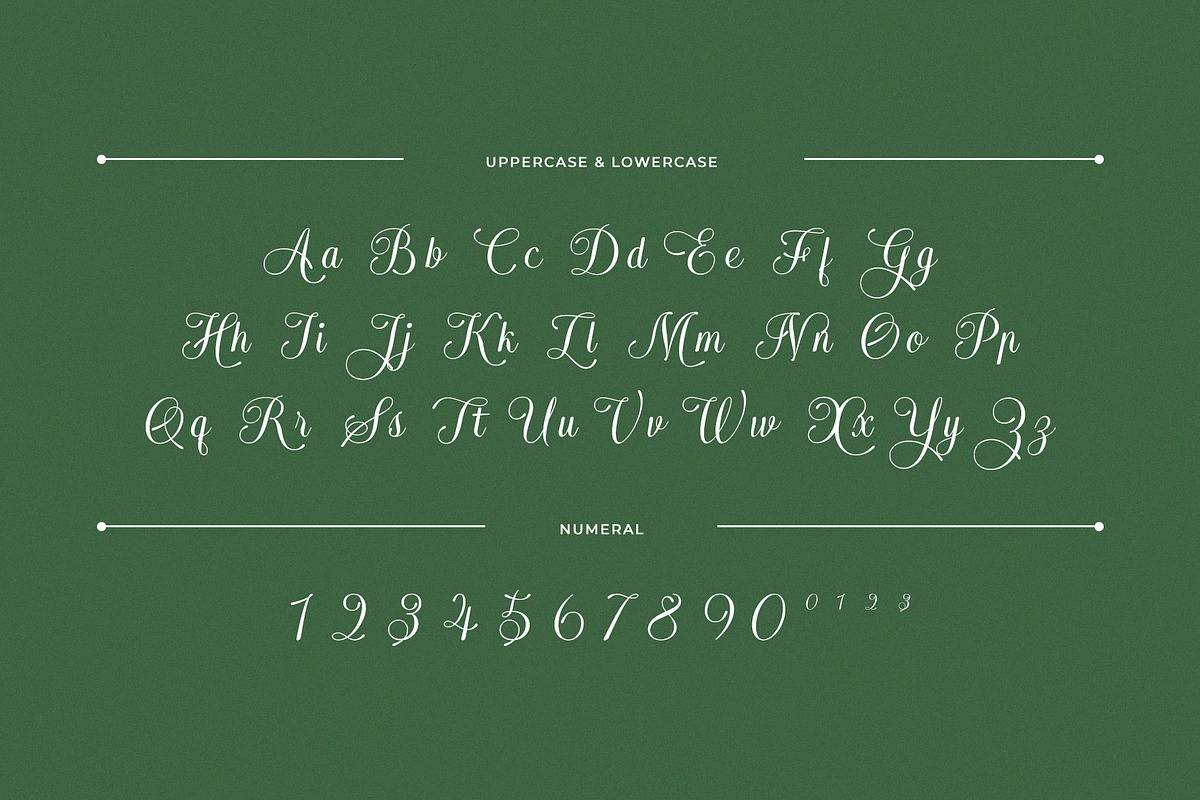 UPPERCASE & LOWERCASE
Aa Bb Cc Dd Ee Ff Gg
Hh Ii Jj Kk Ll Mm Nn Oo Pp
Qq Rr Ss Tt Uu Vv Ww Xx Yy Zz
NUMERAL
1 2 3 4 5 6 7 8 9 0 ⁰ ¹ ² ³